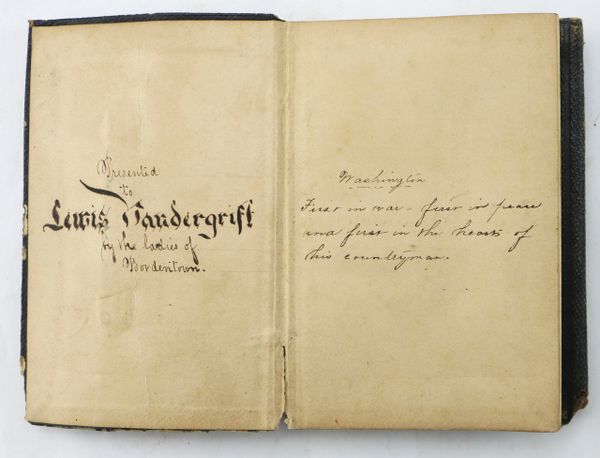 Presented
to
Lewis Vandergrift
by the ladies of
Bordentown.
Washington
First in war - first in peace
and first in the hearts of
his countryman.